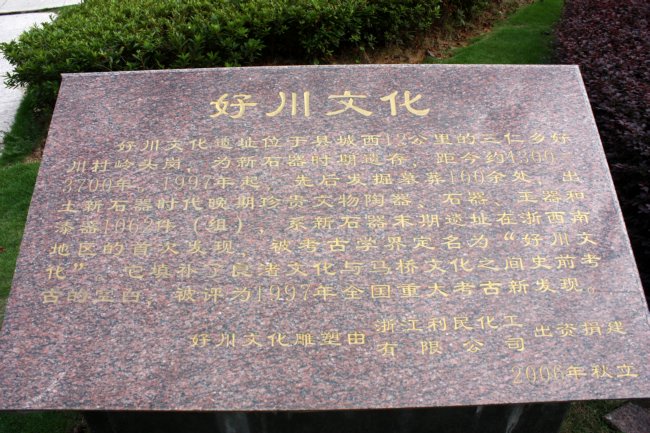 好川文化
好川文化遗址位于县城西12公里的三仁乡好
川村岭头岗，为新石器时期遗存，距今约4300-
3700年。1997年起，先后发掘墓葬100余处，出
土新石器时代晚期珍贵文物陶器、石器、玉器和
漆器1062件（组），系新石器末期遗址在浙西南
地区的首次发现，被考古学界定名为“好川文
化”。它填补了良渚文化与马桥文化之间史前考
古的空白，被评为1997年全国重大考古新发现。
好川文化雕塑由浙江利民化工有限公司出资捐建
2006年秋立